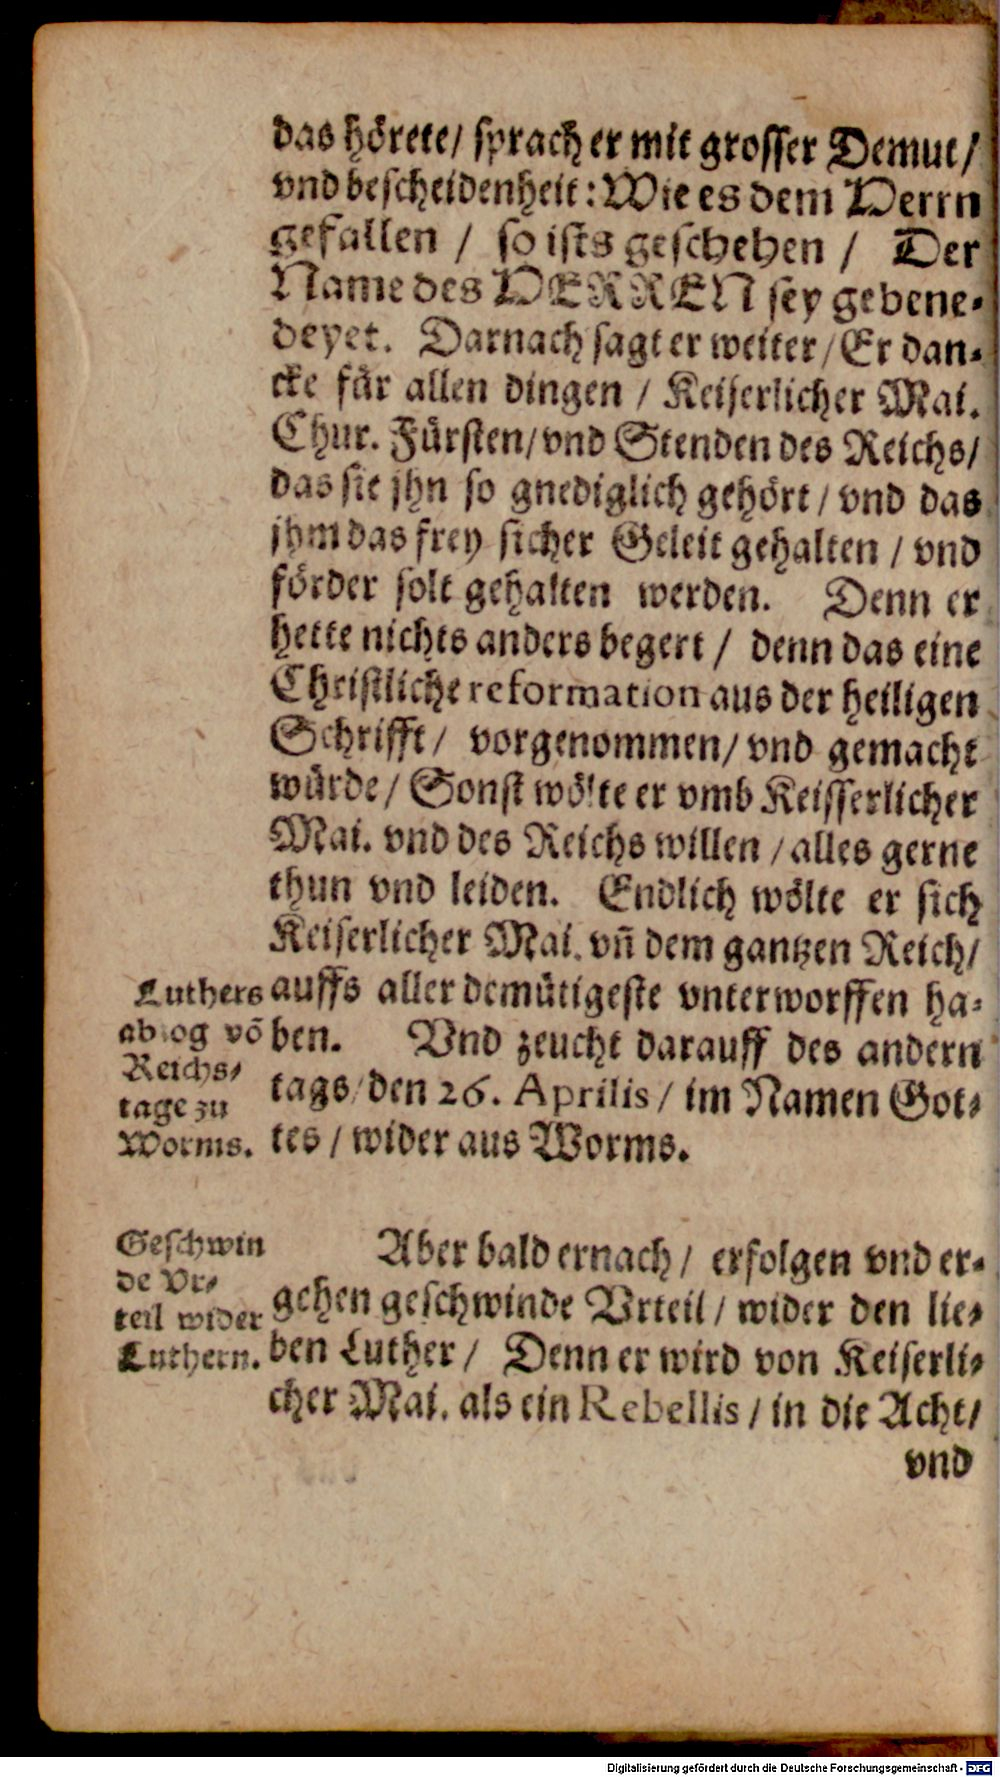 das hörete/ sprach er mit grosser Demut/
vnd bescheidenheit: Wie es dem Herrn
gefallen / so ists geschehen / Der
Name des HERREN sey gebene-
deyet. Darnach sagt er weiter/ Er dan-
cke für allen dingen / Keiserlicher Mai.
Chur. Fürsten/ vnd Stenden des Reichs/
das sie jhn so gnediglich gehört/ vnd das
jhm das frey sicher Geleit gehalten / vnd
förder solt gehalten werden. Denn er
hette nichts anders begert / denn das eine
Christliche reformation aus der heiligen
Schrifft/ vorgenommen/ vnd gemacht
würde/ Sonst wölte er vmb Keisserlicher
Mai. vnd des Reichs willen / alles gerne
thun vnd leiden. Endlich wölte er sich
Keiserlicher Mai. vñ dem gantzen Reich/
auffs aller demütigeste vnterworffen ha-
ben. Vnd zeucht darauff des andern
tags/ den 26. Aprilis / im Namen Got-
tes / wider aus Worms.
Luthers
abzog võ
Reichs-
tage zu
Worms.
Aber bald ernach/ erfolgen vnd er-
gehen geschwinde Vrteil/ wider den lie-
ben Luther/ Denn er wird von Keiserli-
cher Mai. als ein Rebellis / in die Acht/
vnd
Geschwin
de Vr-
teil wider
Luthern.
Digitalisierung gefördert durch die Deutsche Forschungsgemeinschaft - DFG